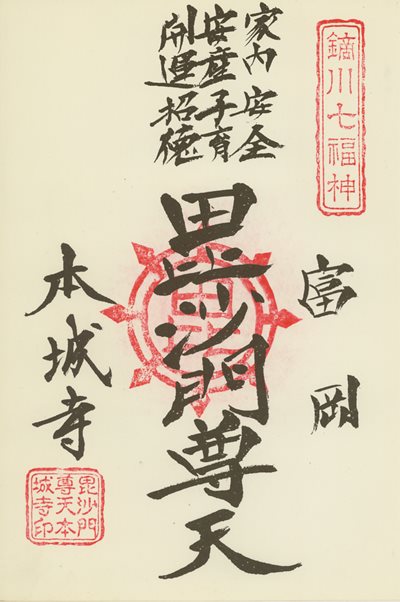 鏑川七福神
富岡
家内安全
安産子育
開運招徳
毘沙門尊天
本城寺
毘沙門
尊天本
城寺印